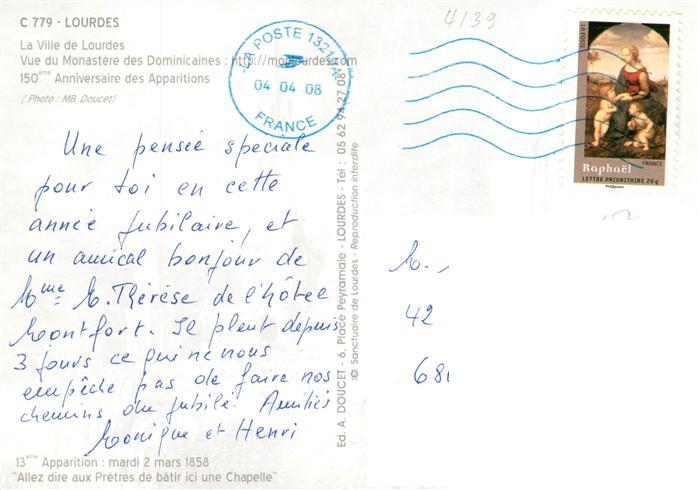 C 779 - LOURDES
La Ville de Lourdes
Vue du Monastère des Dominicaines : http://moplourdes.com
150ème Anniversaire des Apparitions
( Photo : MB. Doucet)
Une pensée spéciale
pour toi en cette
année jubilaire, et
un amical bonjour de
Mme M. Thérèse de l'hôtel
Montfort. Il pleut depuis
3 jours ce qui ne nous
empêche pas de faire nos
chemins du jubilé. Amitiés
Monique et Henri
13ème Apparition : mardi 2 mars 1858
"Allez dire aux Prêtres de bâtir ici une Chapelle"
Ed. A. DOUCET - 6, Place Peyramale - LOURDES - Tél : 05 62 94 27 08
© Sanctuaire de Lourdes - Reproduction interdite
LA POSTE
04 04 08
FRANCE
4139
LA POSTE
FRANCE
Raphaël
LETTRE PRIORITAIRE 20 g
Phil@poste
M.
42
68